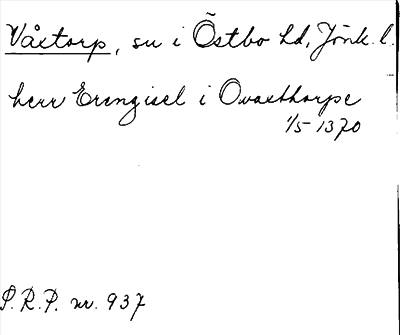 Våxtorp, su i Östbo hd, Jönk. l.
herr Erengisel i Ovaxthorpe
1/5 1370
P.R.P. nr. 937